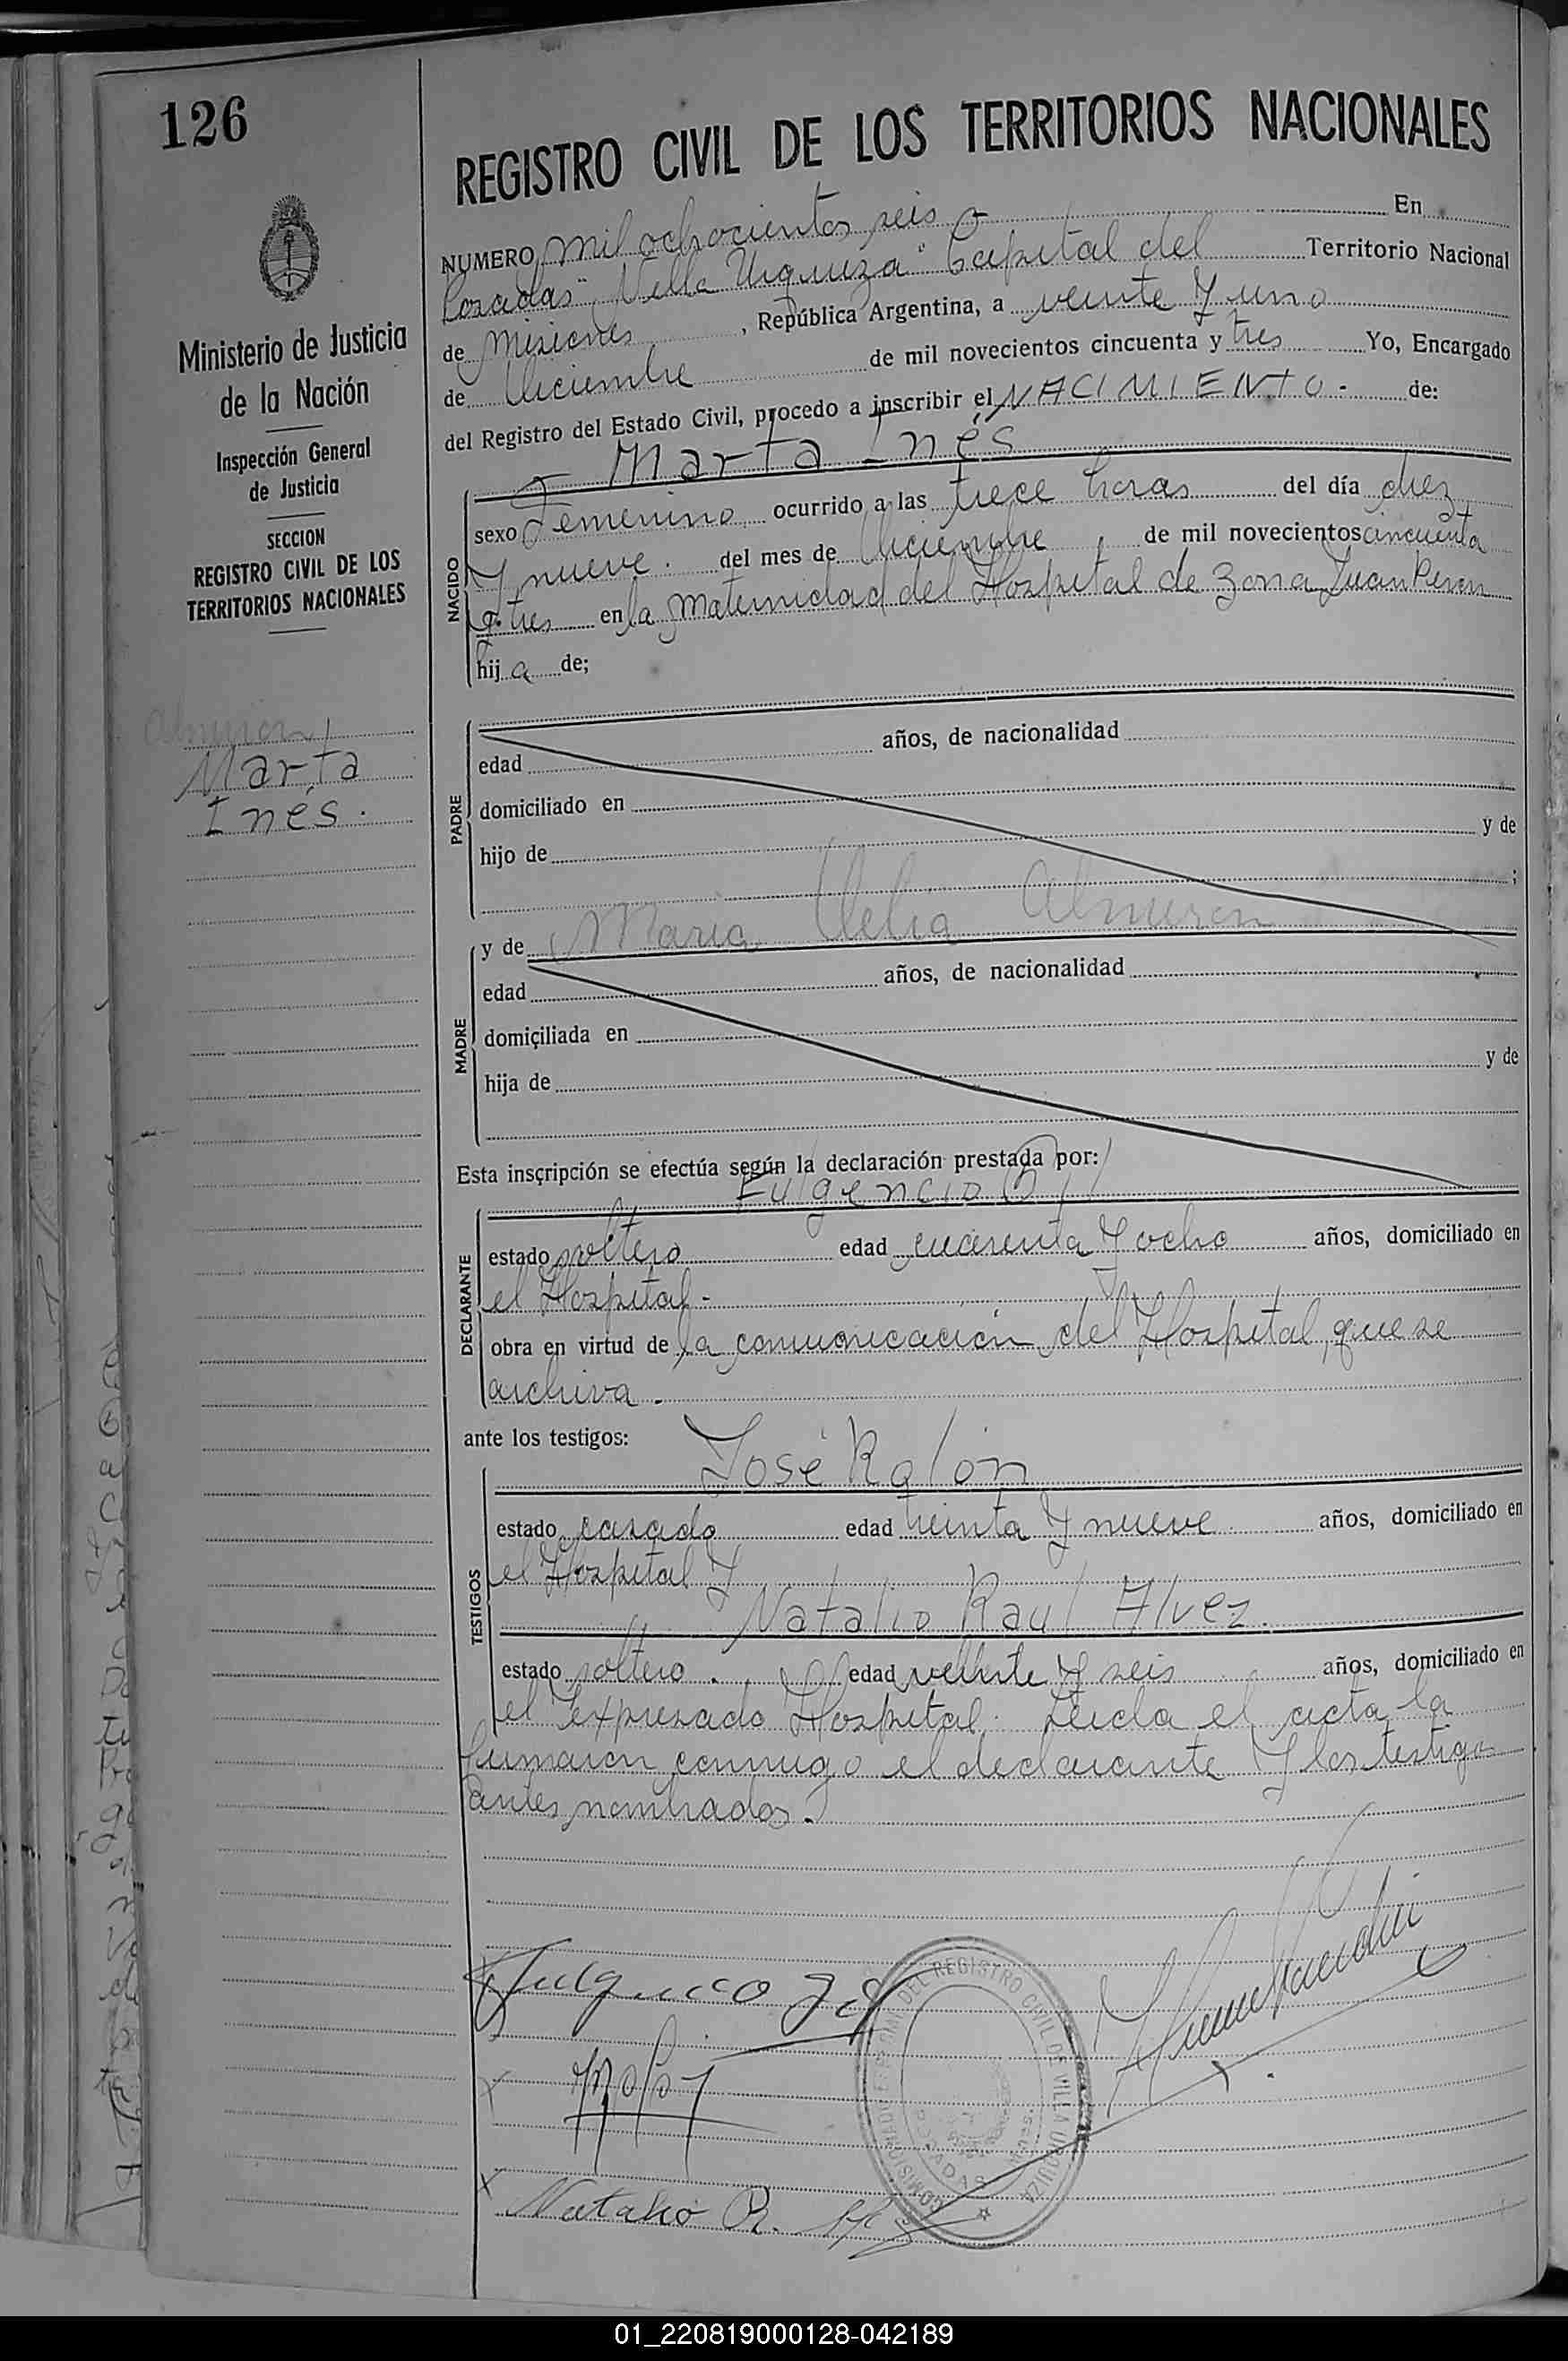 126
REGISTRO CIVIL DE LOS TERRITORIOS NACIONALES
Ministerio de Justicia
de la Nación
Inspección General
de Justicia
SECCION
REGISTRO CIVIL DE LOS
TERRITORIOS NACIONALES
Almiron
Marta
Inés.
NUMERO mil ochocientos seis En
Posadas "Villa Urquiza" Capital del Territorio Nacional
de Misiones, República Argentina, a veinte y uno
de Diciembre de mil novecientos cincuenta y tres Yo, Encargado
del Registro del Estado Civil, procedo a inscribir el NACIMIENTO.- de:
Marta Inés
NACIDO
sexo Femenino ocurrido a las trece horas del día diez
y nueve. del mes de Diciembre, de mil novecientos cincuenta
y tres en la Maternidad del Hospital de Zona Juan Peron
hija de;
PADRE
edad años, de nacionalidad
domiciliado en
hijo de y de
;
MADRE
y de Maria Delia Almiron
edad años, de nacionalidad
domiciliada en
hija de y de
Esta inscripción se efectúa según la declaración prestada por:
Fulgencio Gil
DECLARANTE
estado soltero edad cuarenta y ocho años, domiciliado en
el Hospital.-
obra en virtud de la comunicación del Hospital, que se
archiva.
ante los testigos:
José Rolón
TESTIGOS
estado casado edad treinta y nueve años, domiciliado en
el Hospital y
Natalio Raul Alvez.
estado soltero. edad veinte y seis años, domiciliado en
el expresado Hospital. Leida el acta la
firmaron conmigo el declarante y los testigos
antes nombrados.
Natalio R.
DEL REGISTRO CIVIL DE VILLA URQUIZA
POSADAS
01_220819000128-042189